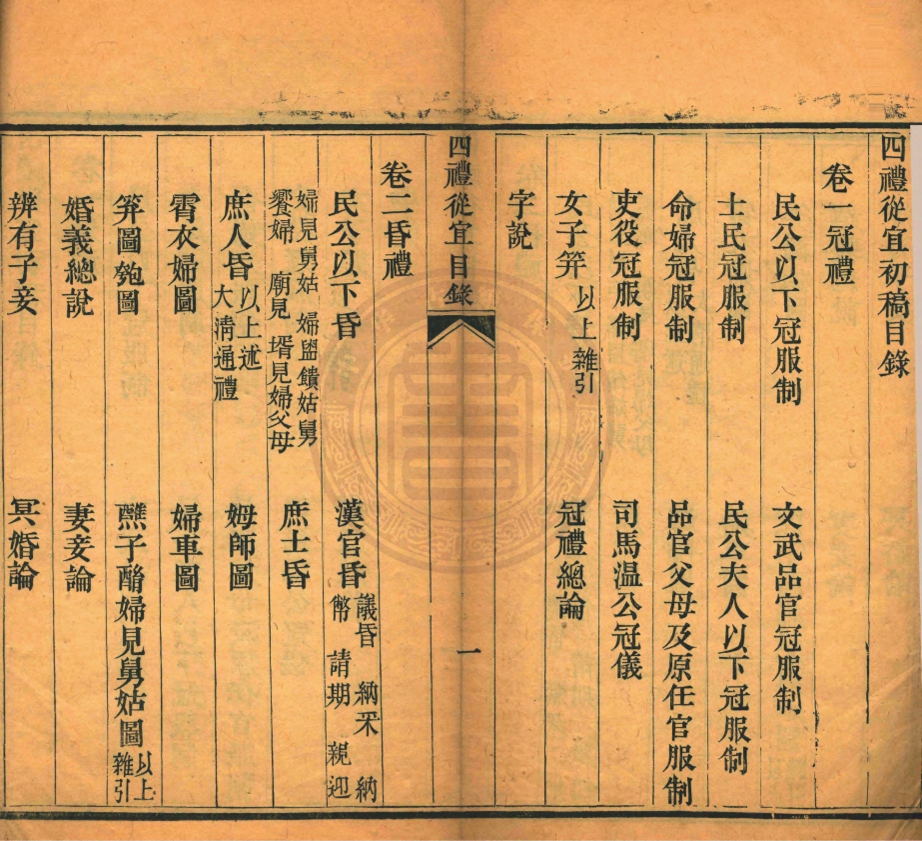 四禮從宜初稿目錄
卷一冠禮
民公以下冠服制 文武品官冠服制
士民冠服制 民公夫人以下冠服制
命婦冠服制 品官父母及原任官服制
吏役冠服制 司馬温公冠儀
女子笄 以上雜引 冠禮總論
字說
四禮從宜目錄 一
卷二昏禮
民公以下昏 漢官昏 議昏 納采 納幣 請期 親迎
婦見舅姑 婦盥饋姑舅 饗婦 廟見 壻見婦父母 庶士昏
庶人昏 以上述大淸通禮 姆師圖
霄衣婦圖 婦車圖
笄圖匏圖 醮子醑婦見舅姑圖 以上雜引
婚義總說 妻妾論
辨有子妾 冥婚論